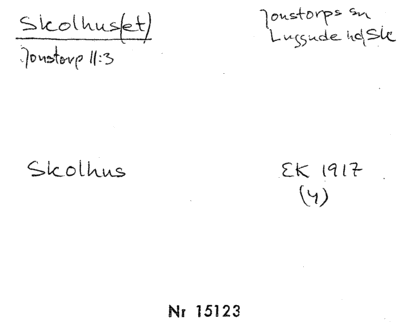 Skolhus(et)
Jonstorps sn
Luggude hd, Sk
Jonstorp 11:3
Skolhus
EK 1917
(4)
Nr 15123